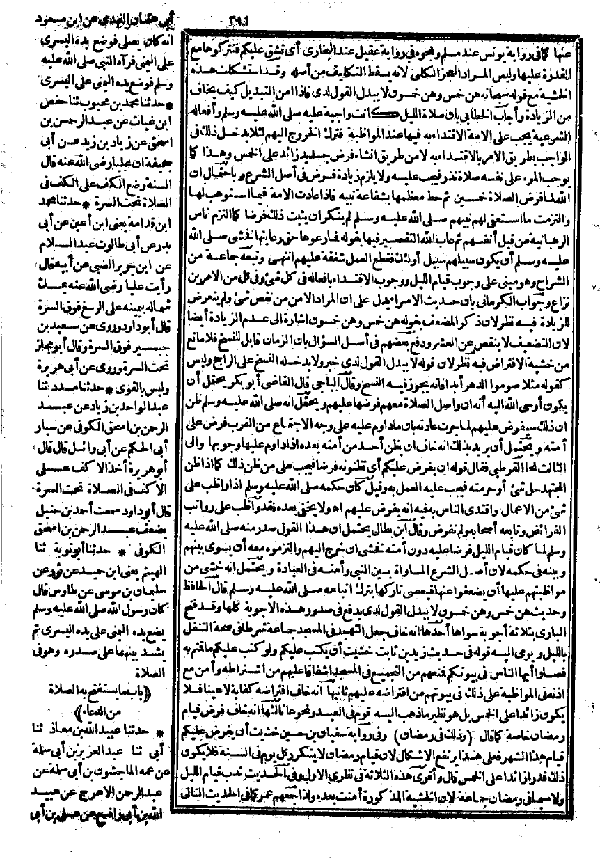 ٢٩١
عنها كما في رواية يونس عند مسلم ونحوه في رواية عقيل عند البخاري أي تشق عليكم فتتركوها مع
القدرة عليها وليس المراد العجز الكلي لانه يسقط التكليف من أصله وقد استشكلت هذه
الخشية مع قوله سبحانه هن خمس وهن خمسون لا يبدل القول لدي فاذا أمن التبديل كيف يخاف
من الزيادة وأجاب الخطابي بان صلاة الليل كانت واجبة عليه صلى الله عليه وسلم وأفعاله
الشرعية يجب على الامة الاقتداء به فيها عند المواظبة فترك الخروج اليهم لئلا يدخل ذلك في
الواجب بطريق الامر بالاقتداء به لا من طريق انشاء فرض جديد زائد على الخمس وهذا كما
يوجب المرء على نفسه صلاة نذر فيجب عليه ولا يلزم زيادة فرض في أصل الشرع وباحتمال ان
الله لما فرض الصلاة خمسين ثم حط معظمها بشفاعة نبيه فاذا عادت الامة فيما استوهب لها
والتزمت ما استعفى لهم نبيهم صلى الله عليه وسلم لم يستنكر ان يثبت ذلك فرضا كما التزم ناس
الرهبانية من قبل أنفسهم ثم عاب الله التقصير فيها بقوله فما رعوها حق رعايتها فخشي صلى الله
عليه وسلم أن يكون سبيلهم سبيل أولئك فقطع العمل شفقة عليهم انتهى وتبعه جماعة من
الشراح وهو مبني على وجوب قيام الليل ووجوب الاقتداء بافعاله في كل شئ وفي كل من الامرين
نزاع وجواب الكرماني بان حديث الاسراء يدل على ان المراد الامن من نقص شئ ولم يتعرض
للزيادة فيه نظر لان ذكر المضعف بقوله هن خمس وهن خمسون اشارة الى عدم الزيادة أيضا
لان التضعيف لا ينقص عن العشر ودفع بعضهم في أصل السؤال بان الزمان قابل للنسخ فلا مانع
من خشية الافتراض فيه نظر لان قوله لا يبدل القول لدي خبر ولا يدخله النسخ على الراجح وليس
كقوله مثلا صوموا الدهر أبدا فانه يجوز فيه النسخ وقال الباجي قال القاضي أبو بكر يحتمل أن
يكون أوحي الله اليه أنه ان واصل الصلاة معهم فرضها عليهم ويحتمل انه صلى الله عليه وسلم ظن
ان ذلك سيفرض عليهم لما جرت عادتهم بان ما داوم عليه على وجه الاجتماع من القرب فرض على
أمته ويحتمل أن يريد بذلك انه خاف ان يظن أحد من أمته بعده اذا داوم عليها وجوبها والى
الثالث نحا القرطبي فقال قوله ان يفرض عليكم أي تظنونه فرضا فيجب على من ظن ذلك كما اذا ظن
المجتهد حل شئ أو حرمته فيجب عليه العمل به وقيل كان حكمه صلى الله عليه وسلم اذا واظب على
شئ من الاعمال واقتدى الناس به فيه انه يفرض عليهم اه ولا يخفى بعده فقد واظب على رواتب
الفرائض وتابعه أصحابه ولم تفرض وقال ابن بطال يحتمل ان هذا القول صدر منه صلى الله عليه
وسلم لما كان قيام الليل فرضا عليه دون أمته فخشي ان خرج اليهم والتزموه معه أن يسوى بينهم
وبينه في حكمه لان أصل الشرع المساواة بين النبي وأمته في العبادة ويحتمل انه خشي من
مواظبتهم عليها أن يضعفوا عنها فيعصي تاركها بترك اتباعه صلى الله عليه وسلم قال الحافظ
وحديث هن خمس وهن خمسون لا يبدل القول لدي يدفع في صدور هذه الاجوبة كلها وقد فتح
الباري بثلاثة أجوبة سواها أحدها انه خاف جعل التهجد في المسجد جماعة شرطا في صحة التنفل
بالليل ويومئ اليه قوله في حديث زيد بن ثابت خشيت أن يكتب عليكم ولو كتب عليكم ما قمتم به
فصلوا أيها الناس في بيوتكم فمنعهم من التجميع في المسجد اشفاقا عليهم من اشتراطه وأمن مع
اذنه في المواظبة على ذلك في بيوتهم من افتراضه عليهم ثانيها انه خاف افتراضه كفاية لا عينا فلا
يكون زائدا على الخمس بل هو نظير ما ذهب اليه قوم في العيد ونحوها ثالثها انه يخاف فرض قيام
رمضان خاصة كما قال (وذلك في رمضان) وفي رواية سفيان بن حسين خشيت أن يفرض عليكم
قيام هذا الشهر فعلى هذا يرتفع الاشكال لان قيام رمضان لا يتكرر كل يوم في السنة فلا يكون
ذلك قدرا زائدا على الخمس قال وأقوى هذه الثلاثة في نظري الاول وفي الحديث ندب قيام الليل
ولا سيما في رمضان جماعة لان الخشية المذكورة أمنت بعده ولذا جمعهم عمر كما في الحديث التالي
أبي عثمان النهدي عن ابن مسعود
انه كان يصلي فوضع يده اليسرى
على اليمنى فرآه النبي صلى الله عليه
وسلم فوضع يده اليمنى على اليسرى
* حدثنا محمد بن محبوب ثنا حفص
ابن غياث عن عبد الرحمن بن
اسحق عن زياد بن زيد عن أبي
جحيفة ان عليا رضي الله عنه قال
السنة وضع الكف على الكف في
الصلاة تحت السرة * حدثنا محمد
ابن قدامة يعني ابن أعين عن أبي
بدر عن أبي طالوت عبد السلام
عن ابن جرير الضبي عن أبيه قال
رأيت عليا رضي الله عنه يمسك
شماله بيمينه على الرسغ فوق السرة
قال أبو داود وروي عن سعيد بن
جبير فوق السرة وقال أبو مجلز
تحت السرة وروي عن أبي هريرة
وليس بالقوي * حدثنا مسدد ثنا
عبد الواحد بن زياد عن عبد
الرحمن بن اسحق الكوفي عن سيار
أبي الحكم عن أبي وائل قال قال
أبو هريرة أخذ الاكف على
الاكف في الصلاة تحت السرة
قال أبو داود سمعت أحمد بن حنبل
يضعف عبد الرحمن بن اسحق
الكوفي * حدثنا أبو توبة ثنا
الهيثم يعني ابن حميد عن ثور عن
سليمان بن موسى عن طاوس قال
كان رسول الله صلى الله عليه وسلم
يضع يده اليمنى على يده اليسرى ثم
يشد بينهما على صدره وهو في
الصلاة
(باب ما يستفتح به الصلاة
من الدعاء)
* حدثنا عبيد الله بن معاذ ثنا
أبي ثنا عبد العزيز بن أبي سلمة
عن عمه الماجشون بن أبي سلمة عن
عبد الرحمن الاعرج عن عبيد
الله بن أبي رافع عن علي بن أبي